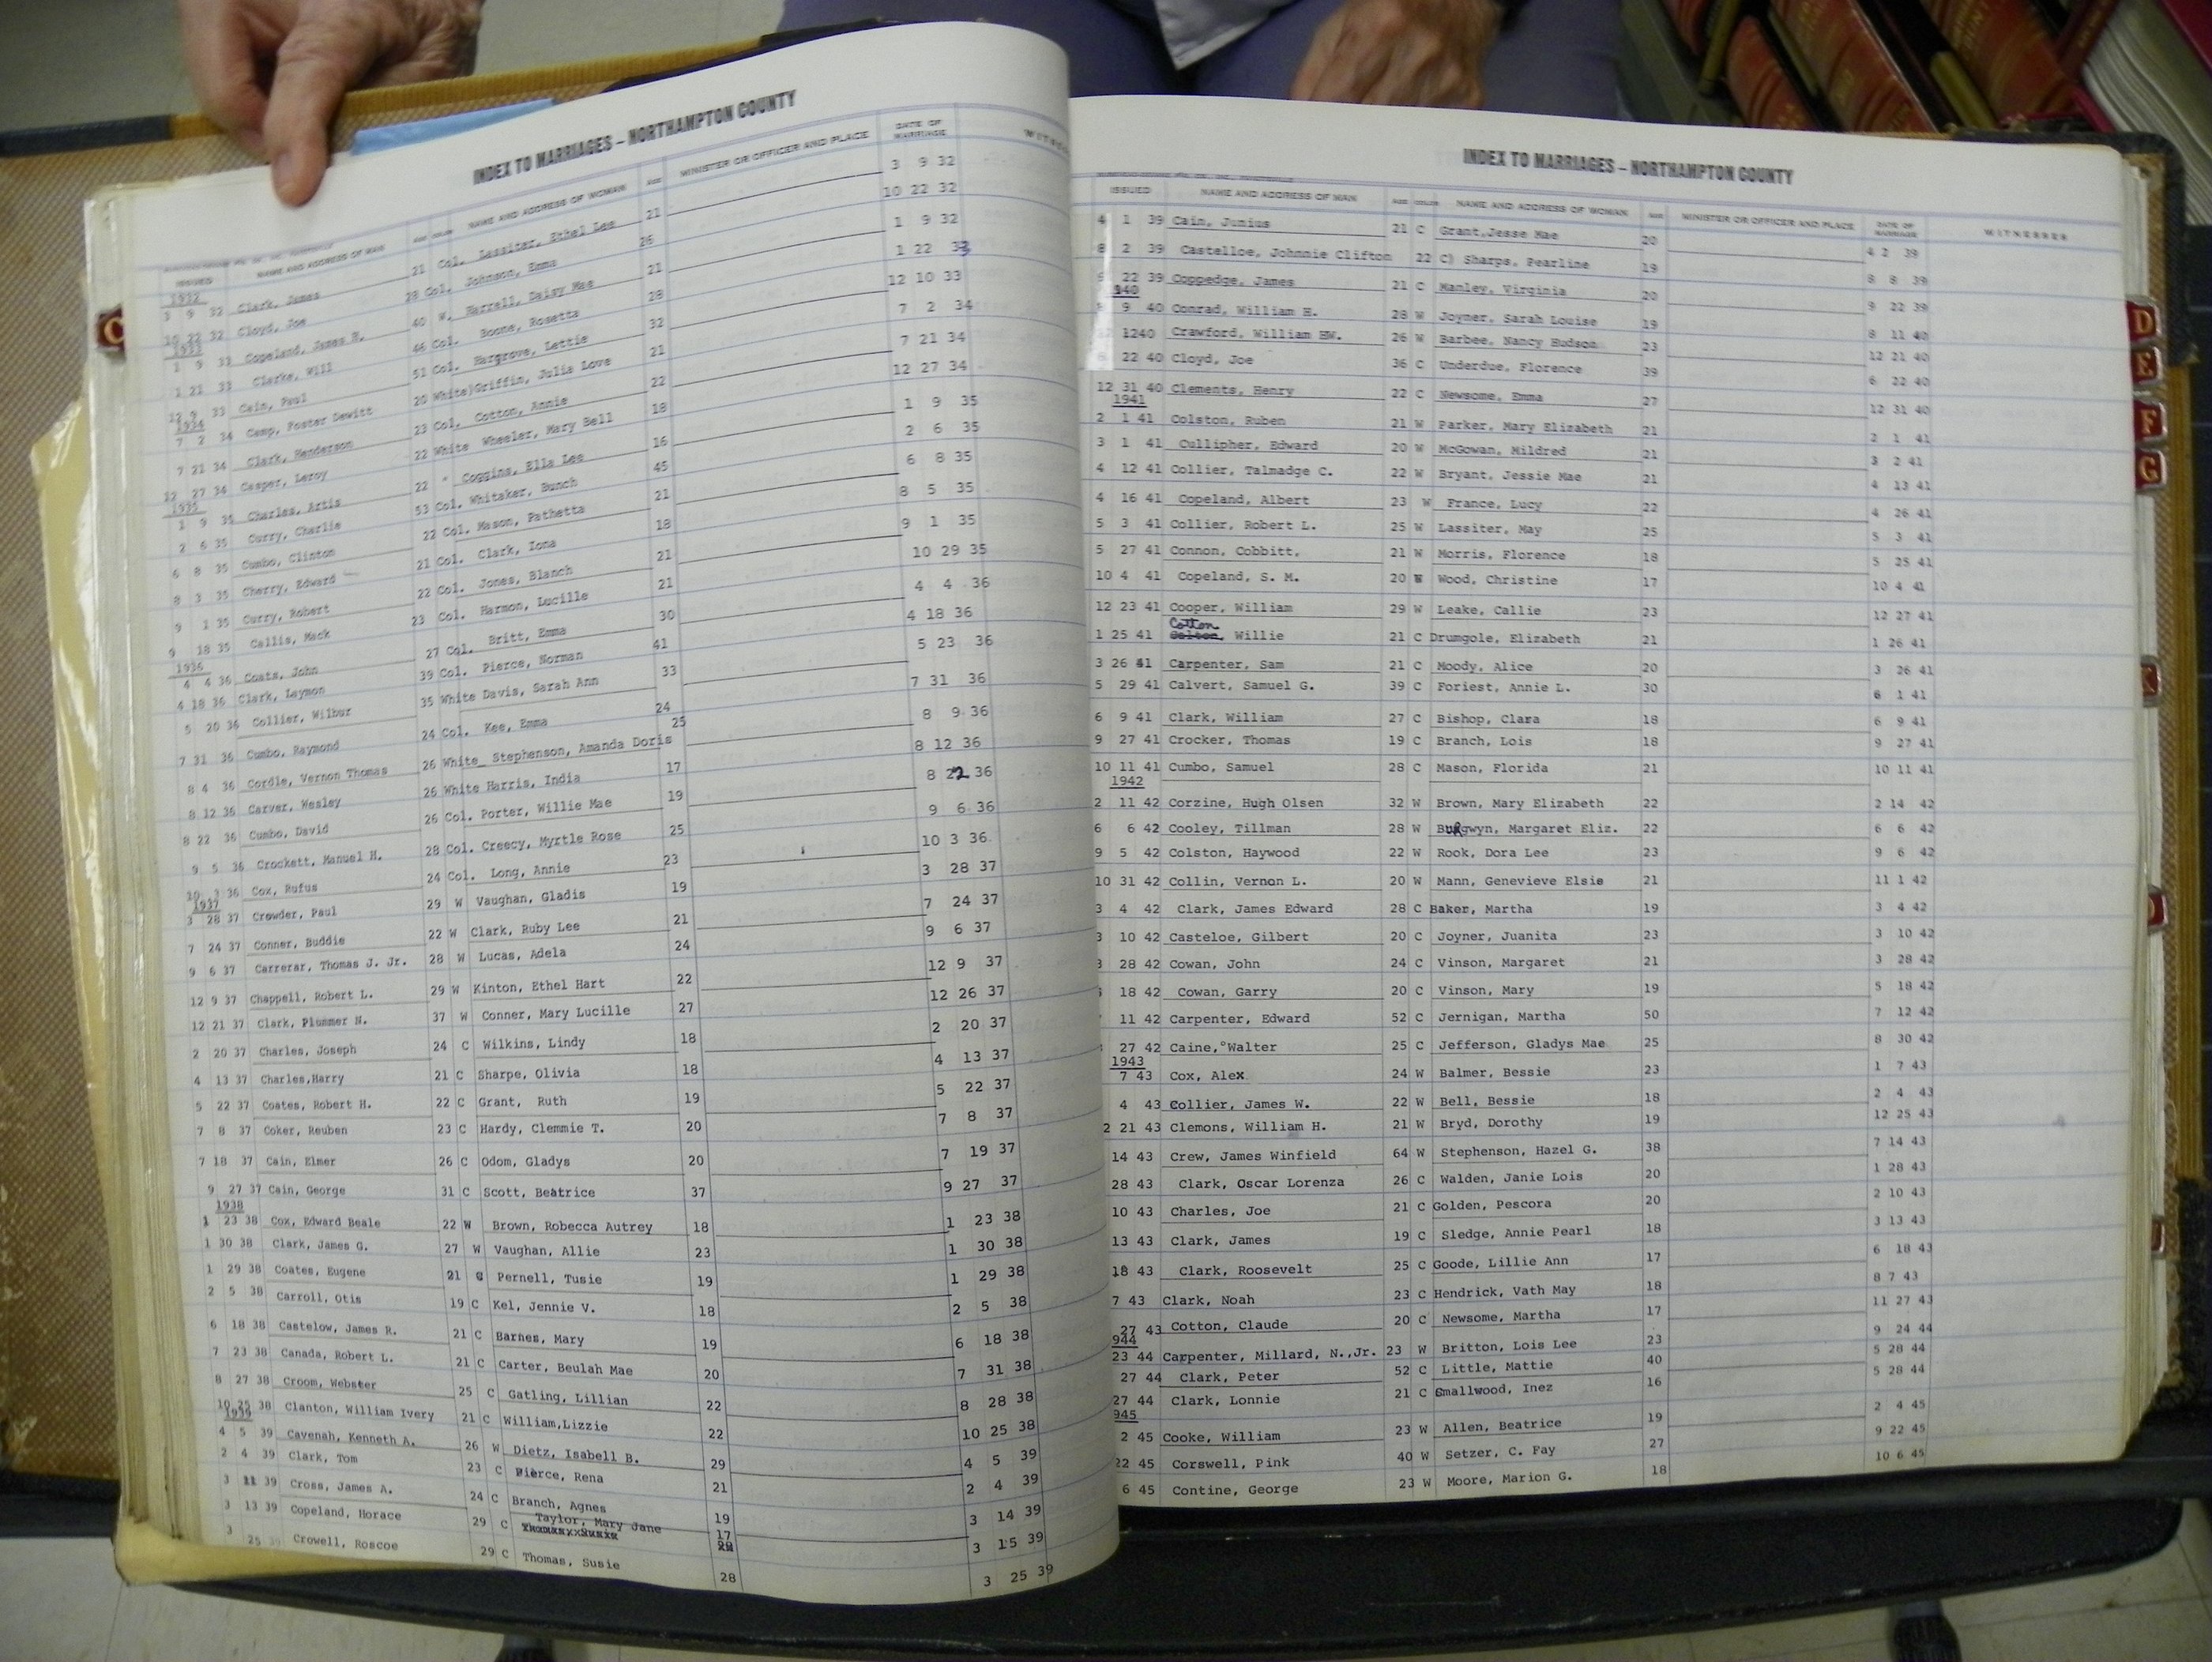 INDEX TO MARRIAGES – NORTHAMPTON COUNTY
ISSUED NAME AND ADDRESS OF MAN AGE COLOR NAME AND ADDRESS OF WOMAN AGE MINISTER OR OFFICER AND PLACE DATE OF MARRIAGE
1932
3 9 32 Clark, James 21 Col. Lassiter, Ethel Lee 21 3 9 32
10 22 32 Cloyd, Joe 28 Col. Johnson, Emma 26 10 22 32
1933
1 9 33 Copeland, James R. 40 W. Harrell, Daisy Mae 21 1 9 32
1 21 33 Clarke, Will 46 Col. Boone, Rosetta 28 1 22 33
12 9 33 Cain, Paul 51 Col. Hargrove, Lettie 32 12 10 33
1934
7 2 34 Camp, Foster Dewitt 20 White)Griffin, Julia Love 21 7 2 34
7 21 34 Clark, Henderson 23 Col. Cotton, Annie 22 7 21 34
12 27 34 Casper, Leroy 22 White Wheeler, Mary Bell 18 12 27 34
1935
1 9 35 Charles, Artis 22 " Coggins, Ella Lee 16 1 9 35
2 6 35 Curry, Charlie 53 Col. Whitaker, Bunch 45 2 6 35
6 8 35 Cumbo, Clinton 22 Col. Mason, Pathetta 21 6 8 35
8 3 35 Cherry, Edward 21 Col. Clark, Iona 18 8 5 35
9 1 35 Curry, Robert 22 Col. Jones, Blanch 21 9 1 35
9 18 35 Callis, Mack 23 Col. Harmon, Lucille 21 10 29 35
1936
4 4 36 Coats, John 27 Col. Britt, Emma 30 4 4 36
4 18 36 Clark, Laymon 39 Col. Pierce, Norman 41 4 18 36
5 20 36 Collier, Wilbur 35 White Davis, Sarah Ann 33 5 23 36
7 31 36 Cumbo, Raymond 24 Col. Kee, Emma 24 7 31 36
8 4 36 Cordle, Vernon Thomas 26 White Stephenson, Amanda Doris 25 8 9 36
8 12 36 Carver, Wesley 26 White Harris, India 17 8 12 36
8 22 36 Cumbo, David 26 Col. Porter, Willie Mae 19 8 22 36
9 5 36 Crockett, Manuel H. 28 Col. Creecy, Myrtle Rose 25 9 6 36
10 3 36 Cox, Rufus 24 Col. Long, Annie 23 10 3 36
1937
3 28 37 Crowder, Paul 29 W Vaughan, Gladis 19 3 28 37
7 24 37 Conner, Buddie 22 W Clark, Ruby Lee 21 7 24 37
9 6 37 Carrerar, Thomas J. Jr. 28 W Lucas, Adela 24 9 6 37
12 9 37 Chappell, Robert L. 29 W Kinton, Ethel Hart 22 12 9 37
12 21 37 Clark, Plummer N. 37 W Conner, Mary Lucille 27 12 26 37
2 20 37 Charles, Joseph 24 C Wilkins, Lindy 18 2 20 37
4 13 37 Charles,Harry 21 C Sharpe, Olivia 18 4 13 37
5 22 37 Coates, Robert H. 22 C Grant, Ruth 19 5 22 37
7 8 37 Coker, Reuben 23 C Hardy, Clemmie T. 20 7 8 37
7 18 37 Cain, Elmer 26 C Odom, Gladys 20 7 19 37
9 27 37 Cain, George 31 C Scott, Beatrice 37 9 27 37
1938
1 23 38 Cox, Edward Beale 22 W Brown, Robecca Autrey 18 1 23 38
1 30 38 Clark, James G. 27 W Vaughan, Allie 23 1 30 38
1 29 38 Coates, Eugene 21 C Pernell, Tusie 19 1 29 38
2 5 38 Carroll, Otis 19 C Kel, Jennie V. 18 2 5 38
6 18 38 Castelow, James R. 21 C Barnes, Mary 19 6 18 38
7 23 38 Canada, Robert L. 21 C Carter, Beulah Mae 20 7 31 38
8 27 38 Croom, Webster 25 C Gatling, Lillian 22 8 28 38
10 25 38 Clanton, William Ivery 21 C William,Lizzie 22 10 25 38
1939
4 5 39 Cavenah, Kenneth A. 26 W Dietz, Isabell B. 29 4 5 39
2 4 39 Clark, Tom 23 C Pierce, Rena 21 2 4 39
3 11 39 Cross, James A. 24 C Branch, Agnes 19 3 14 39
3 13 39 Copeland, Horace 29 C Taylor, Mary Jane 17 3 15 39
3 25 39 Crowell, Roscoe 29 C Thomas, Susie 28 3 25 39
INDEX TO MARRIAGES – NORTHAMPTON COUNTY
ISSUED NAME AND ADDRESS OF MAN AGE COLOR NAME AND ADDRESS OF WOMAN AGE MINISTER OR OFFICER AND PLACE DATE OF MARRIAGE WITNESSES
4 1 39 Cain, Junius 21 C Grant,Jesse Mae 20 4 2 39
8 2 39 Castelloe, Johnnie Clifton 22 C) Sharps, Pearline 19 8 8 39
9 22 39 Coppedge, James 21 C Manley, Virginia 20 9 22 39
940
8 9 40 Conrad, William H. 28 W Joyner, Sarah Louise 19 8 11 40
1240 Crawford, William HW. 26 W Barbee, Nancy Hudson 23 12 21 40
6 22 40 Cloyd, Joe 36 C Underdue, Florence 39 6 22 40
12 31 40 Clements, Henry 22 C Newsome, Emma 27 12 31 40
1941
2 1 41 Colston, Ruben 21 W Parker, Mary Elizabeth 21 2 1 41
3 1 41 Cullipher, Edward 20 W McGowan, Mildred 21 3 2 41
4 12 41 Collier, Talmadge C. 22 W Bryant, Jessie Mae 21 4 13 41
4 16 41 Copeland, Albert 23 W France, Lucy 22 4 26 41
5 3 41 Collier, Robert L. 25 W Lassiter, May 25 5 3 41
5 27 41 Connon, Cobbitt, 21 W Morris, Florence 18 5 25 41
10 4 41 Copeland, S. M. 20 W Wood, Christine 17 10 4 41
12 23 41 Cooper, William 29 W Leake, Callie 23 12 27 41
Cotton
1 25 41 Colton, Willie 21 C Drumgole, Elizabeth 21 1 26 41
3 26 41 Carpenter, Sam 21 C Moody, Alice 20 3 26 41
5 29 41 Calvert, Samuel G. 39 C Foriest, Annie L. 30 6 1 41
6 9 41 Clark, William 27 C Bishop, Clara 18 6 9 41
9 27 41 Crocker, Thomas 19 C Branch, Lois 18 9 27 41
10 11 41 Cumbo, Samuel 28 C Mason, Florida 21 10 11 41
1942
2 11 42 Corzine, Hugh Olsen 32 W Brown, Mary Elizabeth 22 2 14 42
6 6 42 Cooley, Tillman 28 W BuRgwyn, Margaret Eliz. 22 6 6 42
9 5 42 Colston, Haywood 22 W Rook, Dora Lee 23 9 6 42
10 31 42 Collin, Vernon L. 20 W Mann, Genevieve Elsie 21 11 1 42
3 4 42 Clark, James Edward 28 C Baker, Martha 19 3 4 42
3 10 42 Casteloe, Gilbert 20 C Joyner, Juanita 23 3 10 42
3 28 42 Cowan, John 24 C Vinson, Margaret 21 3 28 42
18 42 Cowan, Garry 20 C Vinson, Mary 19 5 18 42
11 42 Carpenter, Edward 52 C Jernigan, Martha 50 7 12 42
27 42 Caine, Walter 25 C Jefferson, Gladys Mae 25 8 30 42
1943
7 43 Cox, Alex 24 W Balmer, Bessie 23 1 7 43
4 43 Collier, James W. 22 W Bell, Bessie 18 2 4 43
2 21 43 Clemons, William H. 21 W Bryd, Dorothy 19 12 25 43
14 43 Crew, James Winfield 64 W Stephenson, Hazel G. 38 7 14 43
28 43 Clark, Oscar Lorenza 26 C Walden, Janie Lois 20 1 28 43
10 43 Charles, Joe 21 C Golden, Pescora 20 2 10 43
13 43 Clark, James 19 C Sledge, Annie Pearl 18 3 13 43
18 43 Clark, Roosevelt 25 C Goode, Lillie Ann 17 6 18 43
7 43 Clark, Noah 23 C Hendrick, Vath May 18 8 7 43
27 43 Cotton, Claude 20 C Newsome, Martha 17 11 27 43
944
23 44 Carpenter, Millard, N.,Jr. 23 W Britton, Lois Lee 23 9 24 44
27 44 Clark, Peter 52 C Little, Mattie 40 5 28 44
27 44 Clark, Lonnie 21 C Smallwood, Inez 16 5 28 44
945
2 45 Cooke, William 23 W Allen, Beatrice 19 2 4 45
22 45 Corswell, Pink 40 W Setzer, C. Fay 27 9 22 45
6 45 Contine, George 23 W Moore, Marion G. 18 10 6 45
C
D
E
F
G
K